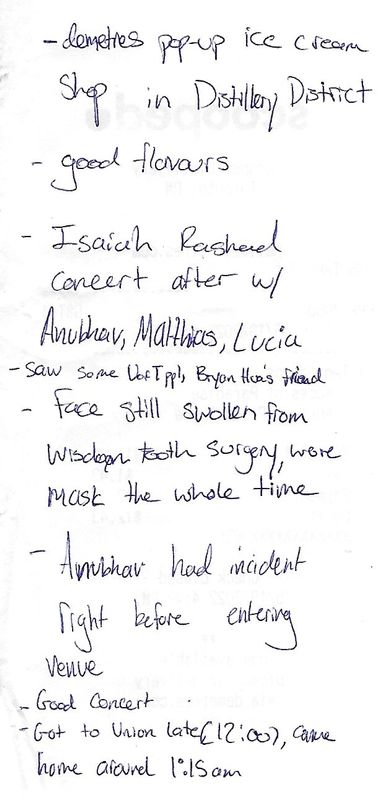 - demetres pop-up ice cream
Shop in Distillery District
- good flavours
- Isaiah Rashad
Concert after w/
Anubhav, Matthias, Lucia
- Saw some UofT ppl, Bryon Hua's friend
- Face still swollen from
wisdom tooth surgery, wore
mask the whole time
- Anubhav had incident
right before entering
venue
- Good Concert
- Got to Union late (12:00), came
home around 1:15am